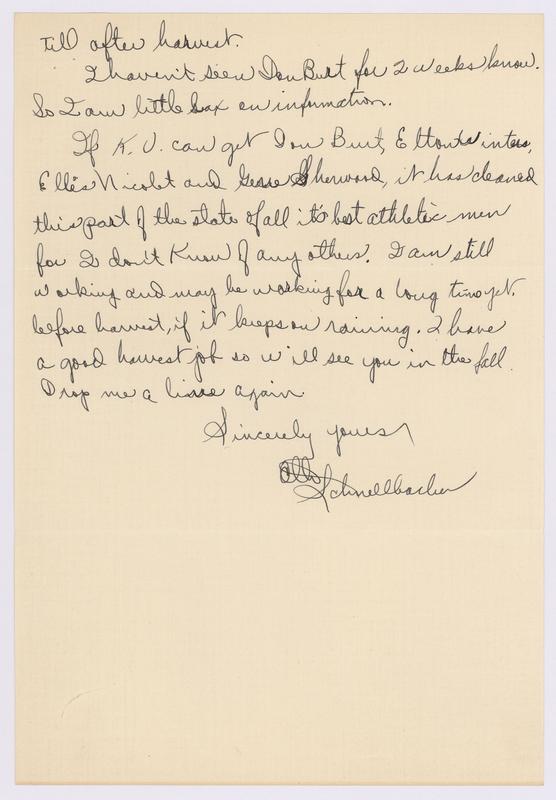 till after harvest.
I haven't seen Don Burt for 2 weeks know.
So I am little lax on information.
If K. U. can get Don Burt, Elton
Ellis Nicolet and Gesse Sherwood, it has cleaned
this part of the state of all it's best athletic men
for I don't know of any others. I am still
working and may be working for a long time yet.
before harvest, if it keeps on raining. I have
a good harvest job so w'ill see you in the fall.
Drop me a line again.
Sincerely yours,
Schnellbacher